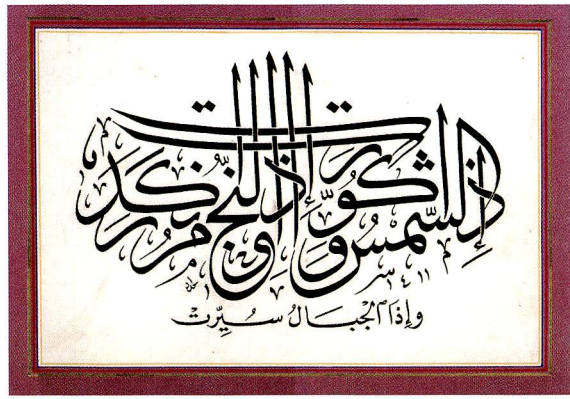 إذا الشّمس كوّرت وإذا النّجوم انكدرت
١٤١١
وإذا الجبال سيّرت